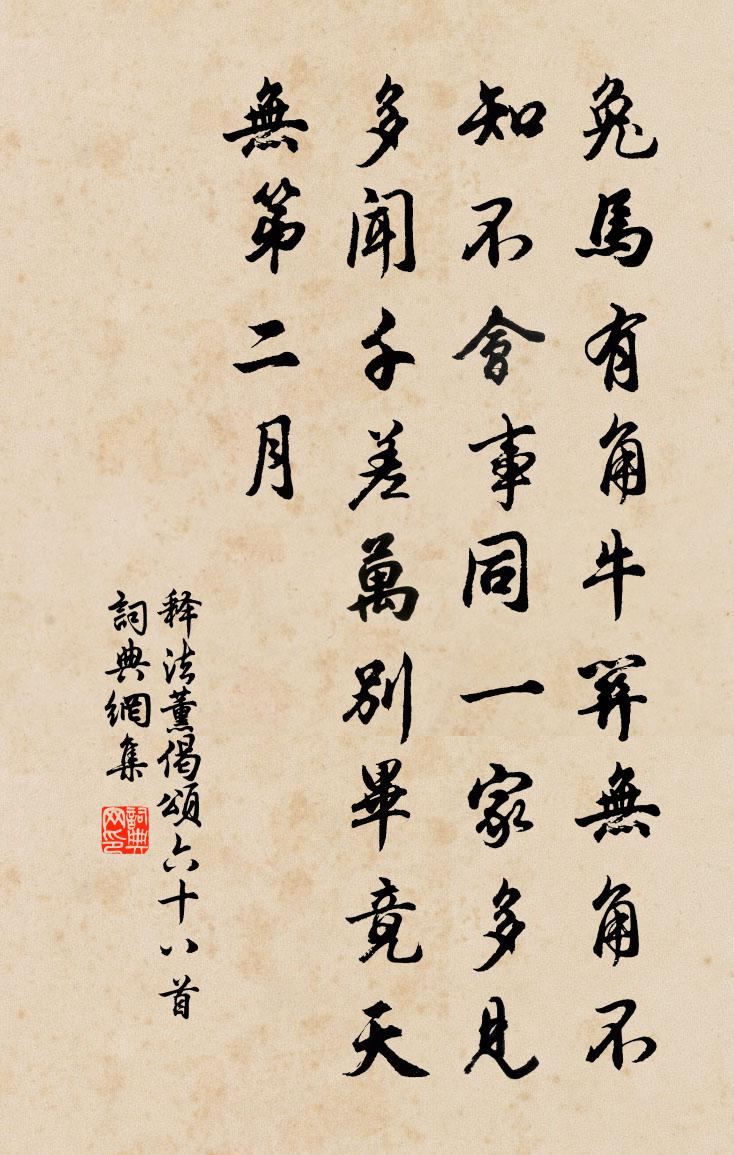 兔馬有角牛羿無角不
知不會事同一家多見
多聞千差萬別畢竟天
無第二月
释法薰偈頌六十八首
詞典網集
詞典
网印